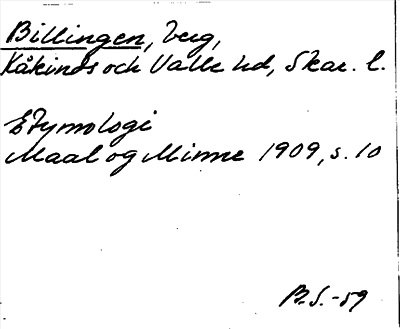 Billingen, berg,
Kåkinds och Valle hd, Skar. l.
Etymologi
Maal og Minne 1909, s. 10
B.S. -59